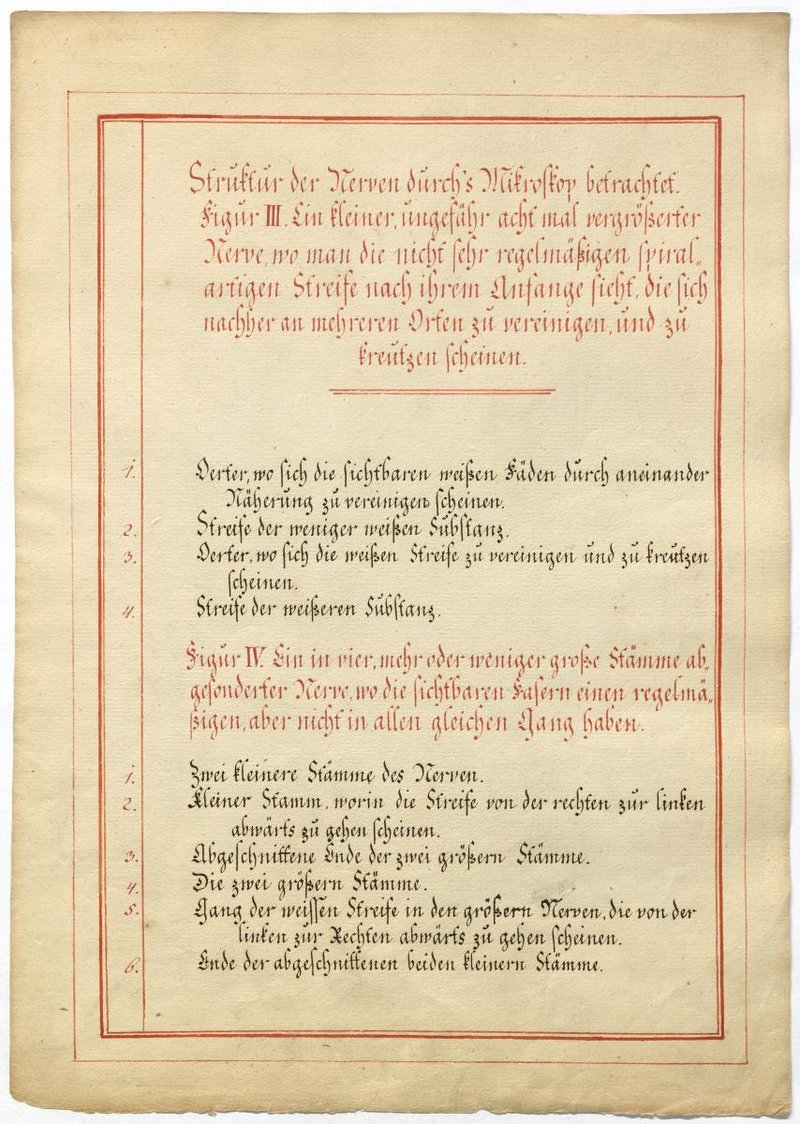 Struktur der Nerven durch's Mikroskop betrachtet.
Figur III. Ein kleiner, ungefähr acht mal vergrößerter
Nerve, wo man die nicht sehr regelmäßigen spiral-
artigen Streife nach ihrem Anfange sieht, die sich
nachher an mehreren Orten zu vereinigen, und zu
kreutzen scheinen.
1. Oerter, wo sich die sichtbaren weißen Fäden durch aneinander
Näherung zu vereinigen scheinen.
2. Streife der weniger weißen Substanz.
3. Oerter, wo sich die weißen Streife zu vereinigen und zu kreutzen
scheinen.
4. Streife der weißeren Substanz.
Figur IV. Ein in vier, mehr oder weniger große Stämme ab-
gesonderter Nerve, wo die sichtbaren Fasern einen regelmä-
ßigen, aber nicht in allen gleichen Gang haben.
1. Zwei kleinere Stämme des Nerven.
2. Kleiner Stamm, worin die Streife von der rechten zur linken
abwärts zu gehen scheinen.
3. Abgeschnittene Ende der zwei größern Stämme.
4. Die zwei größern Stämme.
5. Gang der weissen Streife in den größern Nerven, die von der
linken zur Rechten abwärts zu gehen scheinen.
6. Ende der abgeschnittenen beiden kleinern Stämme.